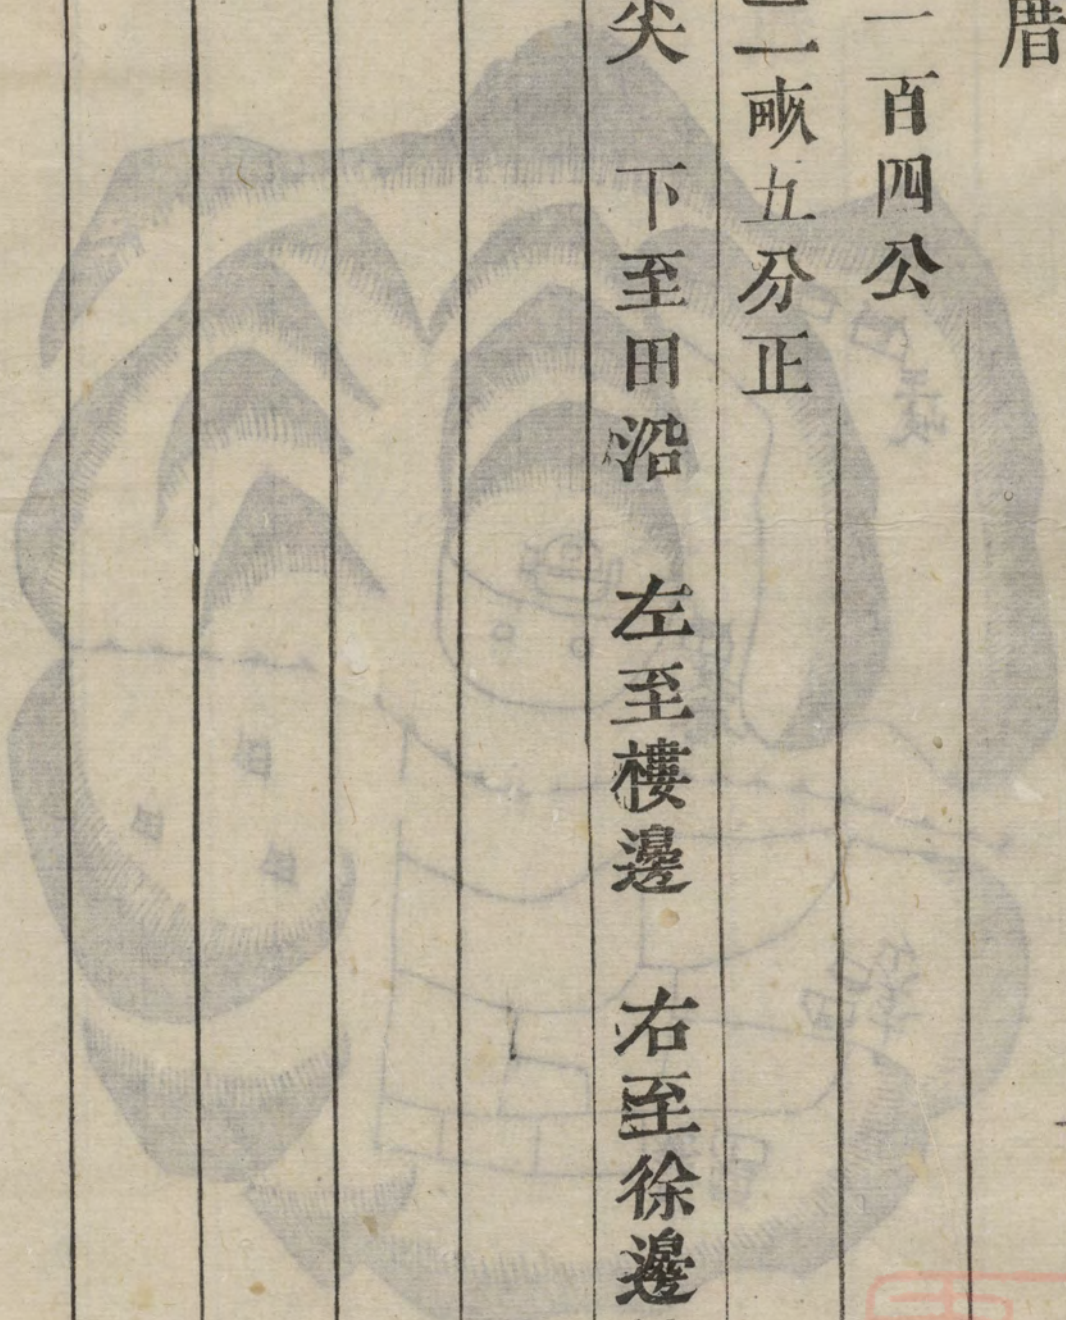 厝
一百四公
二畝五分正
尖 下至田沿 左至樓邊 右至徐邊